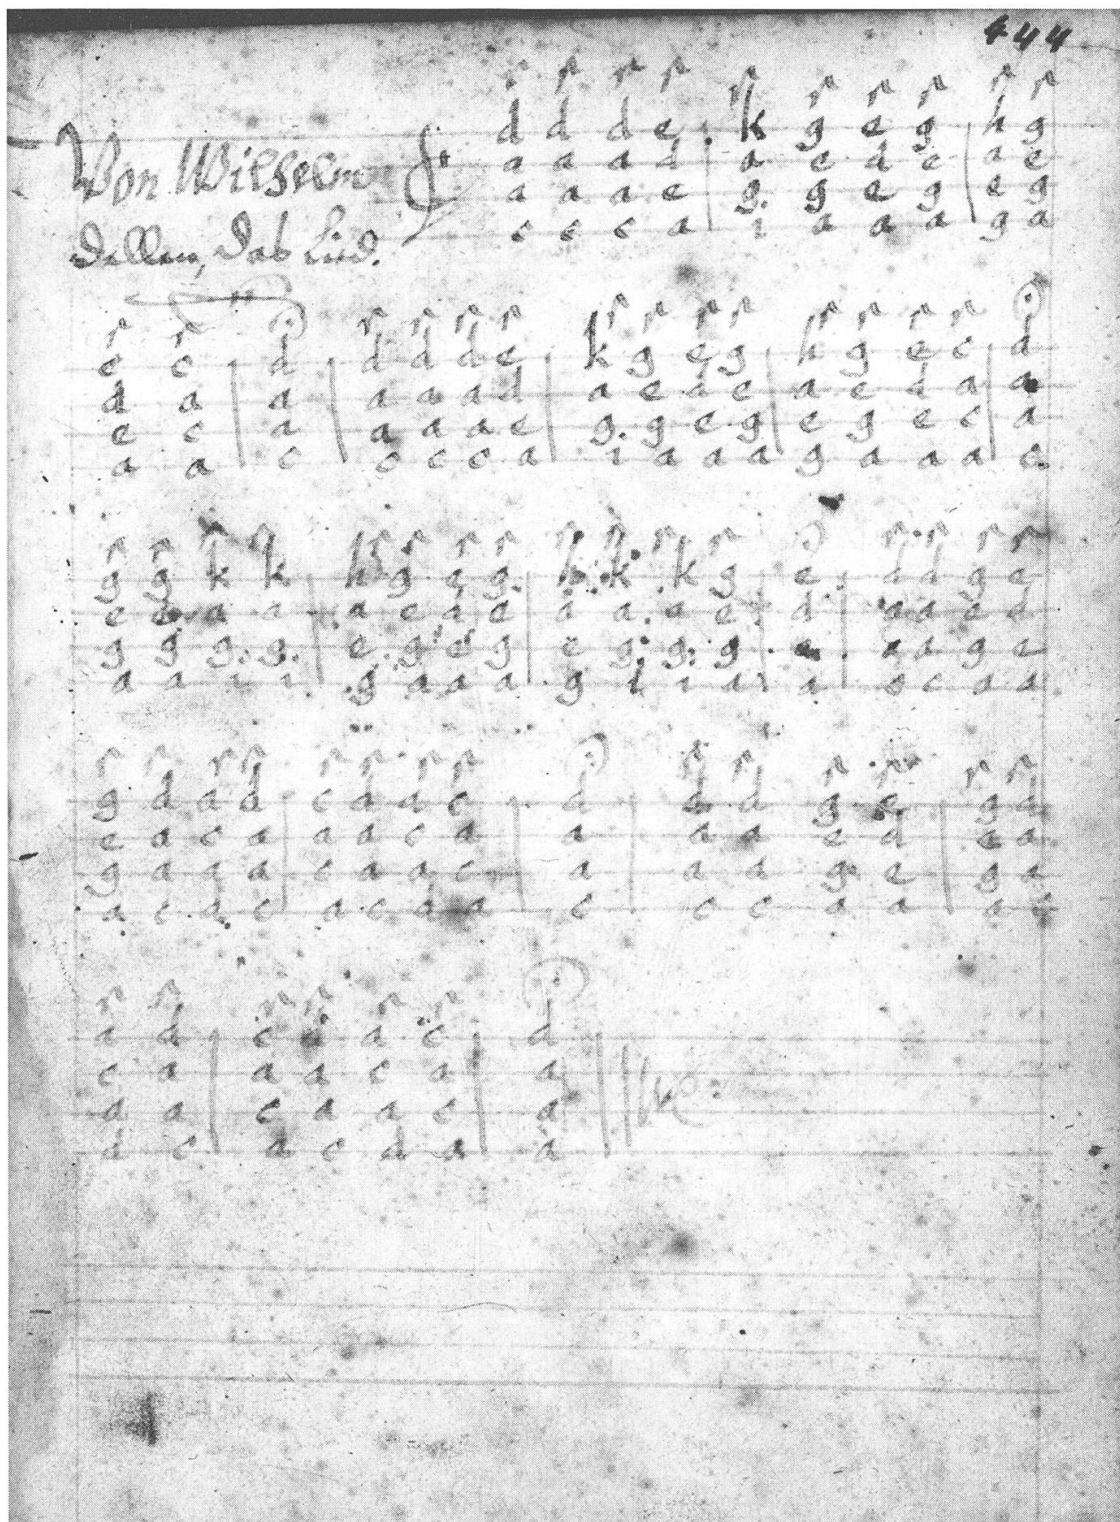 444
Von Wilhelm
Dellen, Das Lied.
d d d e | k g e g | h g
a a a d | a e d e | a e
a a a e | g. g e g | e g
c c c a | i a a a | g a
e c | d | d d d e | k g e g | h g e c | d
d a | a | a a a d | a e d e | a e d a | a
e c | a | a a a e | g. g e g | e g e c | a
a a | c | c c c a | i a a a | g a a a | c
g g k k | h g e g | h k k g | e | d d g e
e e a a | a e d e | a a a e | d | a a e d
g g g. g. | e g e g | e g. g. g | e | a a g e
a a i i | g a a a | g i i a | a | c c a a
g d a d | c d a c | d | d d g e | g d
e a c a | a a c a | a | a a e d | e a
g a a a | c a a c | a | a a g e | g a
a c d c | a c d a | c | c c a a | a c
a d | c d a c | d
c a | a a c a | a
a a | c a a c | a
d c | a c d a | a